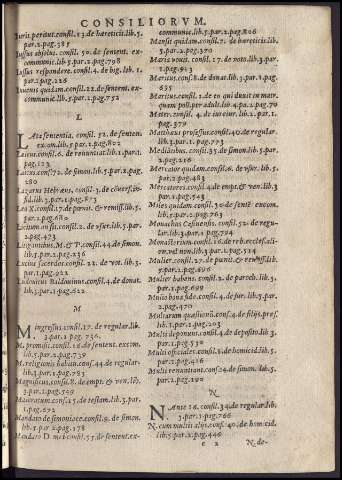 CONSILIORVM.
Iuris peritus consil. 13. de hæreticis lib. 5.
par. 2. pag. 385
Iussus absolui. consil. 50. de sentent. ex-
communic. lib. 5. par. 2. pag. 798
Iussus respondere. consil. 4. de big. lib. 1.
par. 1. pag. 226
Iuuenis quidam consil. 22. de sentent. ex-
communic. lib. 5. par. 2. pag. 752
L
LAta sententia, consil. 52. de sentent.
excom. lib. 5. par. 2. pag. 802
Laicus consil. 6. de renuntiat. lib. 1. par. 1.
pag. 123
Laicus consil. 72. de simon. lib. 5. par. 2. pag.
280
Lazarus Hebræus. consil. 5. de
lib. 3. par. 1. pag. 873
Leo X. consil. 7. de pœnit. & remiss. lib. 5.
par. 2. pag. 680
consil. 2. de vsur. lib. 5. par.
2. pag. 473
Litigantibus M. & P. consil. 44. de simon.
lib. 5. par. 2. pag. 236
sacerdos. consil. 22. de vot. lib. 3. par.
1. pag. 921
Ludouicus Balduinus. consil. 4. de donat.
lib. 3. par. 1. pag. 622
M
M. ingressus consil. 17. de regular. lib.
3. par. 1. pag. 736.
M. promisit. consil. 16. de sentent. excom.
lib. 5. par. 2. pag. 739
M. religionis habitu consil. 44. de regular.
lib. 3. par. 1. pag. 783
Magnificus. consil. 8. de empt. & ven. lib.
3. par. 1. pag. 549
consil. 15. de testam. lib. 3. par.
1. pag. 672
Mandato de simoniace. consil. 9. de simon.
lib. 5. par. 2. pag. 178
Mandato D. mei consil. 55. de sentent. ex-
communic. lib. 5. par. 2. pag. 806
Mansit quidam. consil. 7. de hæreticis. lib.
5. par. 2. pag. 370
Maris vouit. consil. 17. de voto. lib. 3. par.
1. pag. 913
Marius. consil. 8. de donat. lib. 3. par. 1. pag.
635
Maritus. consil. 1. de eo qui duxit in matr.
quam poll. per adult. lib. 4. pa. 2. pag. 70
Mater. consil. 4. de iureiur. lib. 2. par. 1.
pag. 370
Matthæus professus consil. 40. de regular.
lib. 3. par. 1. pag. 773
Mediatibus. consil. 35. de simon. lib. 5. par.
2. pag. 216
Mercator quidam. consil. 6. de vsur. lib. 5.
par. 2. pag. 483
Mercatores. consil. 4. de empt. & ven. lib.
3. par. 1. pag. 543
Miles quidam consil. 30. de sentent. excom.
lib. 5. par. 2. pag. 763
Monachus Casinensis. consil. 52. de regu-
lar. lib. 3. par. 1. pag. 794
Monasterium consil. 16. de reb. eccles. ali-
en. vel non. lib. 3. par. 1. pag. 524
Mulier. consil. 27. de pœnit. & remiss. lib.
5. par. 2. pag. 696
Mulier habens. consil. 2. de paroch. lib. 3.
par. 1. pag. 699
Mulio bona fide. consil. 4. de fur. lib. 5. par.
2. pag. 470
Multarum quæstionū. consil. 4. de filijs. pres.
lib. 1. par. 1. pag. 203
Multi deponunt. consil. 4. de deposito lib. 3.
par. 1. pag. 530
Multi officiales. consil. 1. de homicid. lib. 5.
par. 2. pag. 416
Multi renuntiant. consil. 24. de simon. lib. 5.
par. 2. pag. 190
N
NAnte 16. consil. 34. de regular. lib.
3. par. 1. pag. 766
N. cum multis alijs. consil. 40. de homicid.
lib. 5. par. 2. pag. 446
e 2 N. de-